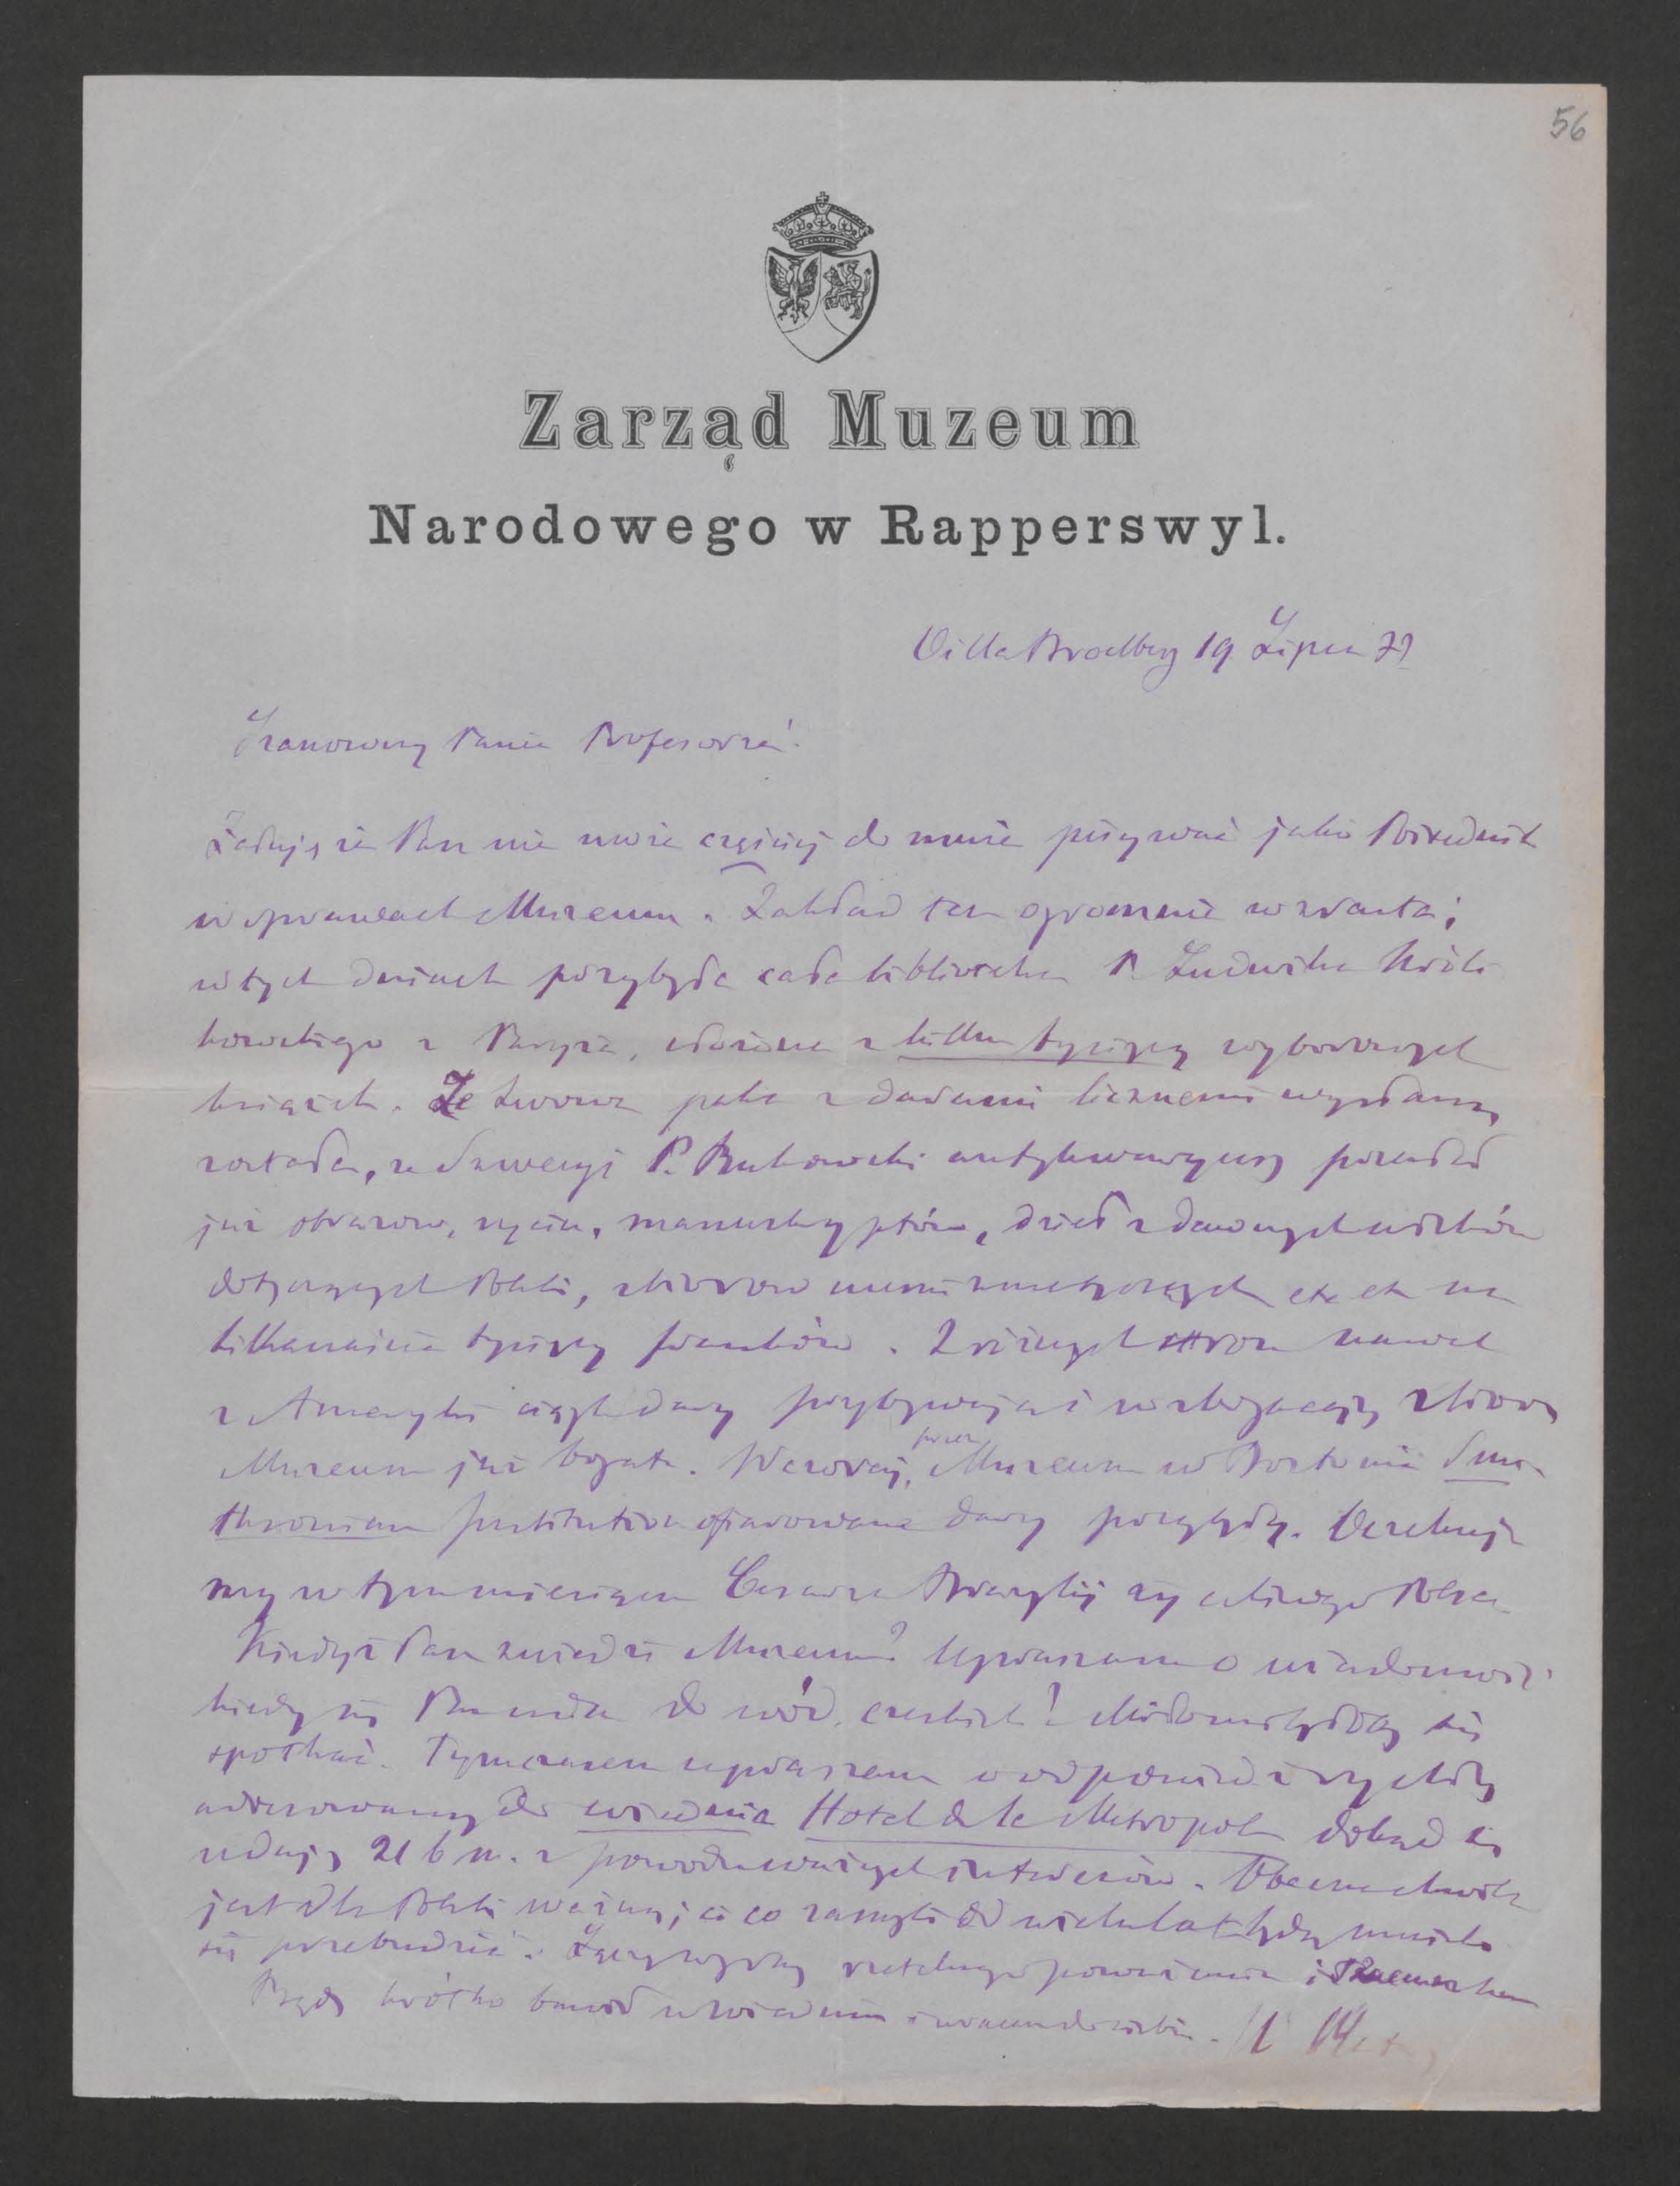 56
Zarząd Muzeum
Narodowego w Rapperswyl.
Villa Broelberg 19 Lipca 77
Szanowny Panie Profesorze!
Żałuję że Pan nie może częściej do mnie pisywać jako Pośrednik
w sprawach Muzeum. Zakład ten ogromnie wzrasta;
w tych dniach przybyła cała biblioteka P. Ludwika Króli
kowskiego z Paryża, złożona z kilku tysięcy wyborowych
książek. Ze Lwowa paka z darami licznemi wysłaną
została, ze Szwecyi P. Bukowski antykwaryusz przesłał
już obrazow, rycin, manuskryptów, dzieł z dawnych wieków
dotyczących Polski, zbiorow numizmatycznych etc etc na
kilkanaście tysięcy franków. Z różnych stron nawet
z Ameryki ciągle dary przybywają i wzbogacają zbiory
Muzeum już bogate. Wczoraj, przez Muzeum w Bostonie Smi-
thsonian Institution ofiarowane dary przyszły. Oczekuje
my w tym miesiącu Cesarza Brazylij
Kiedyż Pan zwiedzi Muzeum? Upraszam o wiadomość
kiedy się Pan uda do wód czeskich? się
spotkać. Tymczasem upraszam o odpowiedź
adresowaną do Wiednia Hotel de la Metropole dokąd się
udaję 21 b m. z powodu ważnych interesów. Obecna chwila
jest dla Polski ważną; ci co zasnęli od wielu lat będą musieli
się przebudzić. Łączę wyrazy rzetelnego poważania i szacunku
Będę krótko bawił w Wiedniu